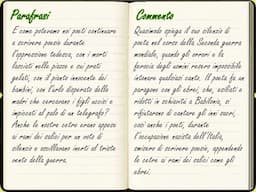 Parafrasi
E come potevamo noi poeti continuare
a scrivere poesie durante
l'oppressione tedesca, con i morti
lasciati nelle piazze e sui prati
gelati, con il pianto innocente dei
bambini, con l'urlo disperato delle
madri che cercavano i figli uccisi e
impiccati al palo di un telegrafo?
Anche le nostre cetre erano appese
ai rami dei salici per un voto di
silenzio e oscillavano inerti al triste
vento della guerra.
Commento
Quasimodo spiega il suo silenzio di
poeta nel corso della Seconda guerra
mondiale, quando gli errori e la
ferocia degli uomini resero impossibile
intonare qualsiasi canto. Il poeta fa un
paragone con gli ebrei, che, esiliati e
ridotti in schiavitù a Babilonia, si
rifiutarono di cantare gli inni sacri,
così anche i poeti, durante
l'occupazione nazista dell'Italia,
smisero di scrivere poesie, appendendo
le cetre ai rami dei salici come gli
ebrei.